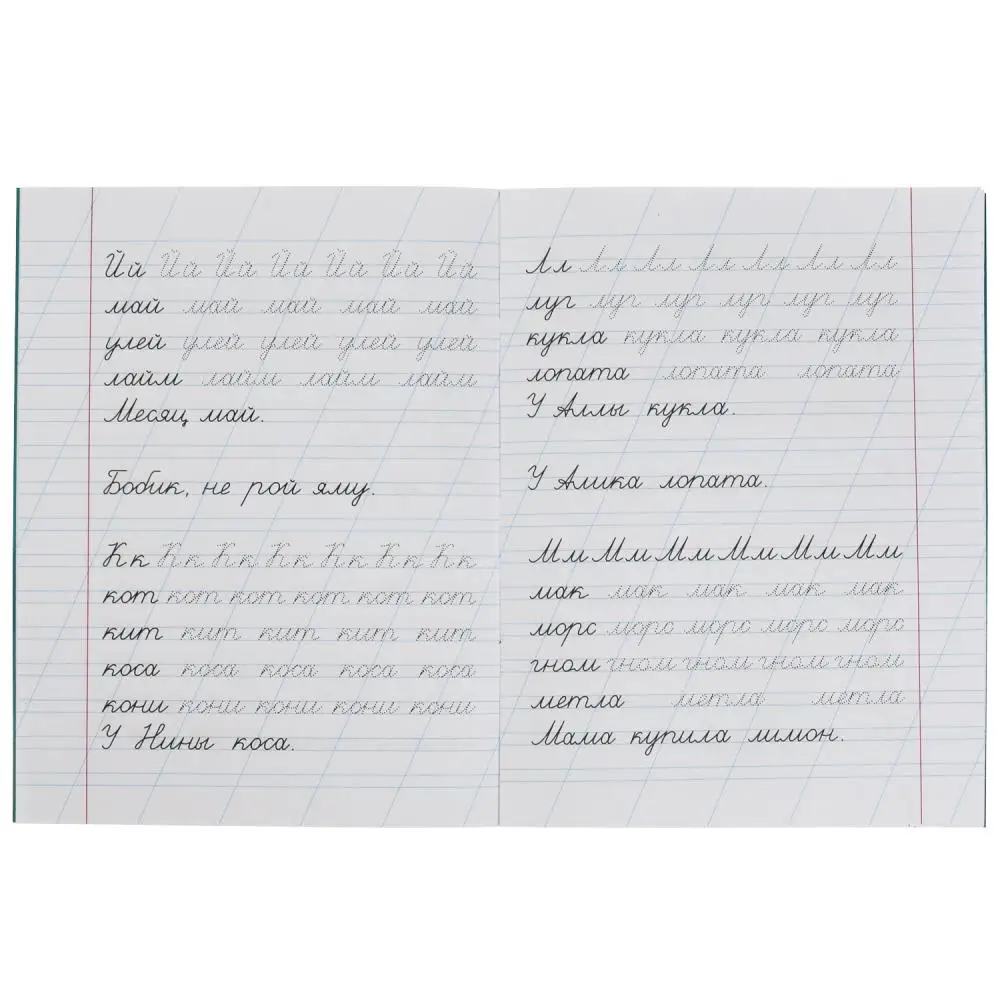 Йй Йй Йй Йй Йй Йй Йй
май май май май май
улей улей улей улей улей
лайм лайм лайм лайм
Месяц май.
Бобик, не рой яму.
Кк Кк Кк Кк Кк Кк Кк
кот кот кот кот кот кот
кит кит кит кит кит
коса коса коса коса коса
кони кони кони кони кони
У Нины коса.
Лл Лл Лл Лл Лл Лл Лл
луг луг луг луг луг луг
кукла кукла кукла кукла
лопата лопата лопата
У Аллы кукла.
У Алика лопата.
Мм Мм Мм Мм Мм Мм
мак мак мак мак мак
морс морс морс морс морс
гном гном гном гном гном
метла метла метла
Мама купила лимон.